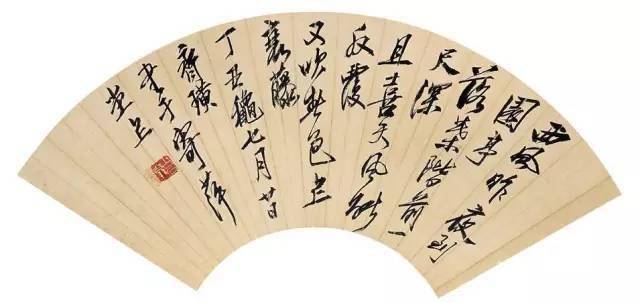 西風昨夜到
園亭
落葉階前一
尺深
且喜天風能
反覆
又吹春色上
藤
丁丑龝七月廿日
齊璜
書于寄萍
堂上